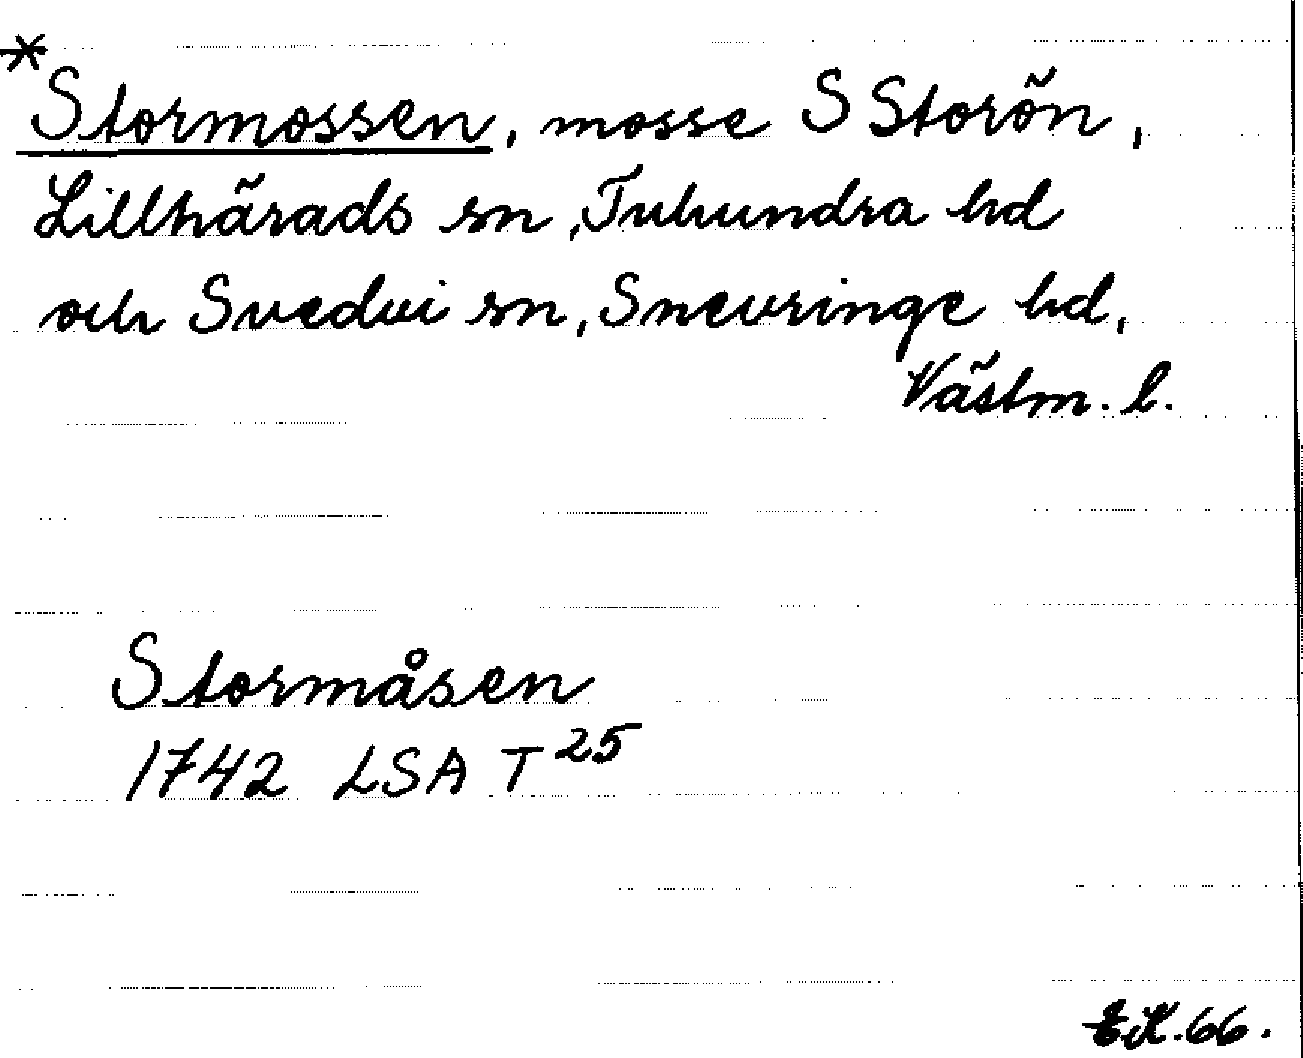 *Stormossen, mosse S Storön,
Lillhärads sn, Tuhundra hd
och Svedvi sn, Snevringe hd,
Västm. l.
Stormåsen
1742 LSA T 25
66.